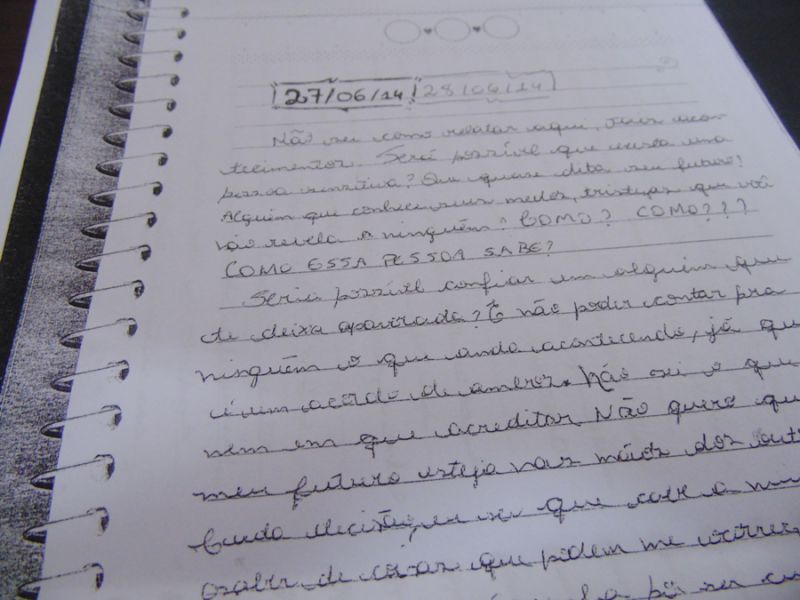 27/06/14 28/06/14
Não sei como relatar aqui, esses acon
tecimentos. Será possível que exista uma
pessoa sensitiva? Que quase dita seu futuro?
Alguém que conhece seus medos, tristezas que você
não revela a ninguém? COMO? COMO???
COMO ESSA PESSOA SABE?
Seria possível confiar em alguém que
te deixa apavorada? E não poder contar pra
ninguém o que anda acontecendo, já que
é um acordo de ambos. Não sei o que
nem em que acreditar. Não quero que
meu futuro esteja nas mãos dos outr
decisão, eu sei que cabe a mim
saber de coisas que podem me ocorrer,